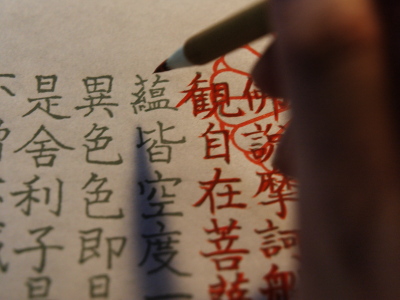 佛説摩訶般
観自在菩薩
蘊皆空度一
異色色即是
是舍利子是